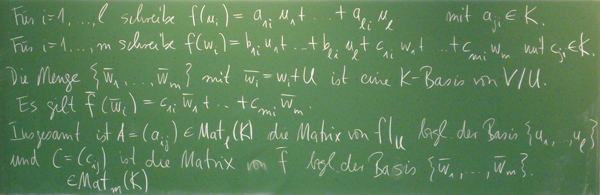 Für i=1,...,l schreibe f(u_i) = a_{1i} u_1 + ... + a_{li} u_l mit a_{ji} ∈ K.
Für i=1,...,m schreibe f(w_i) = b_{1i} u_1 + .. + b_{li} u_l + c_{1i} w_1 + ... + c_{mi} w_m mit c_{ji} ∈ K.
Die Menge {w̄_1, ..., w̄_m} mit w̄_i = w_i + U ist eine K-Basis von V/U.
Es gilt f̄(w̄_i) = c_{1i} w̄_1 + ... + c_{mi} w̄_m.
Insgesamt ist A = (a_{ij}) ∈ Mat_l(K) die Matrix von f|_U bzgl. der Basis {u_1, .., u_l}
und C = (c_{ij}) ist die Matrix von f̄ bzgl. der Basis {w̄_1, ..., w̄_m}.
∈ Mat_m(K)